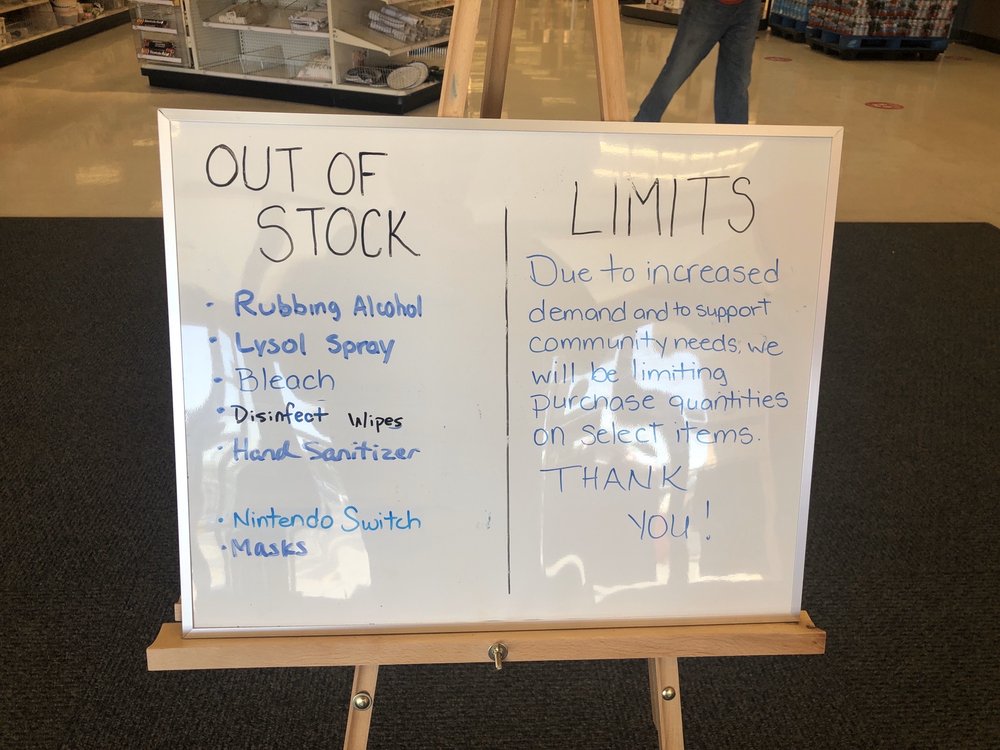 OUT OF
STOCK
• Rubbing Alcohol
• Lysol Spray
• Bleach
• Disinfect Wipes
• Hand Sanitizer
• Nintendo Switch
• Masks
LIMITS
Due to increased
demand and to support
community needs, we
will be limiting
purchase quantities
on select items.
THANK
YOU!